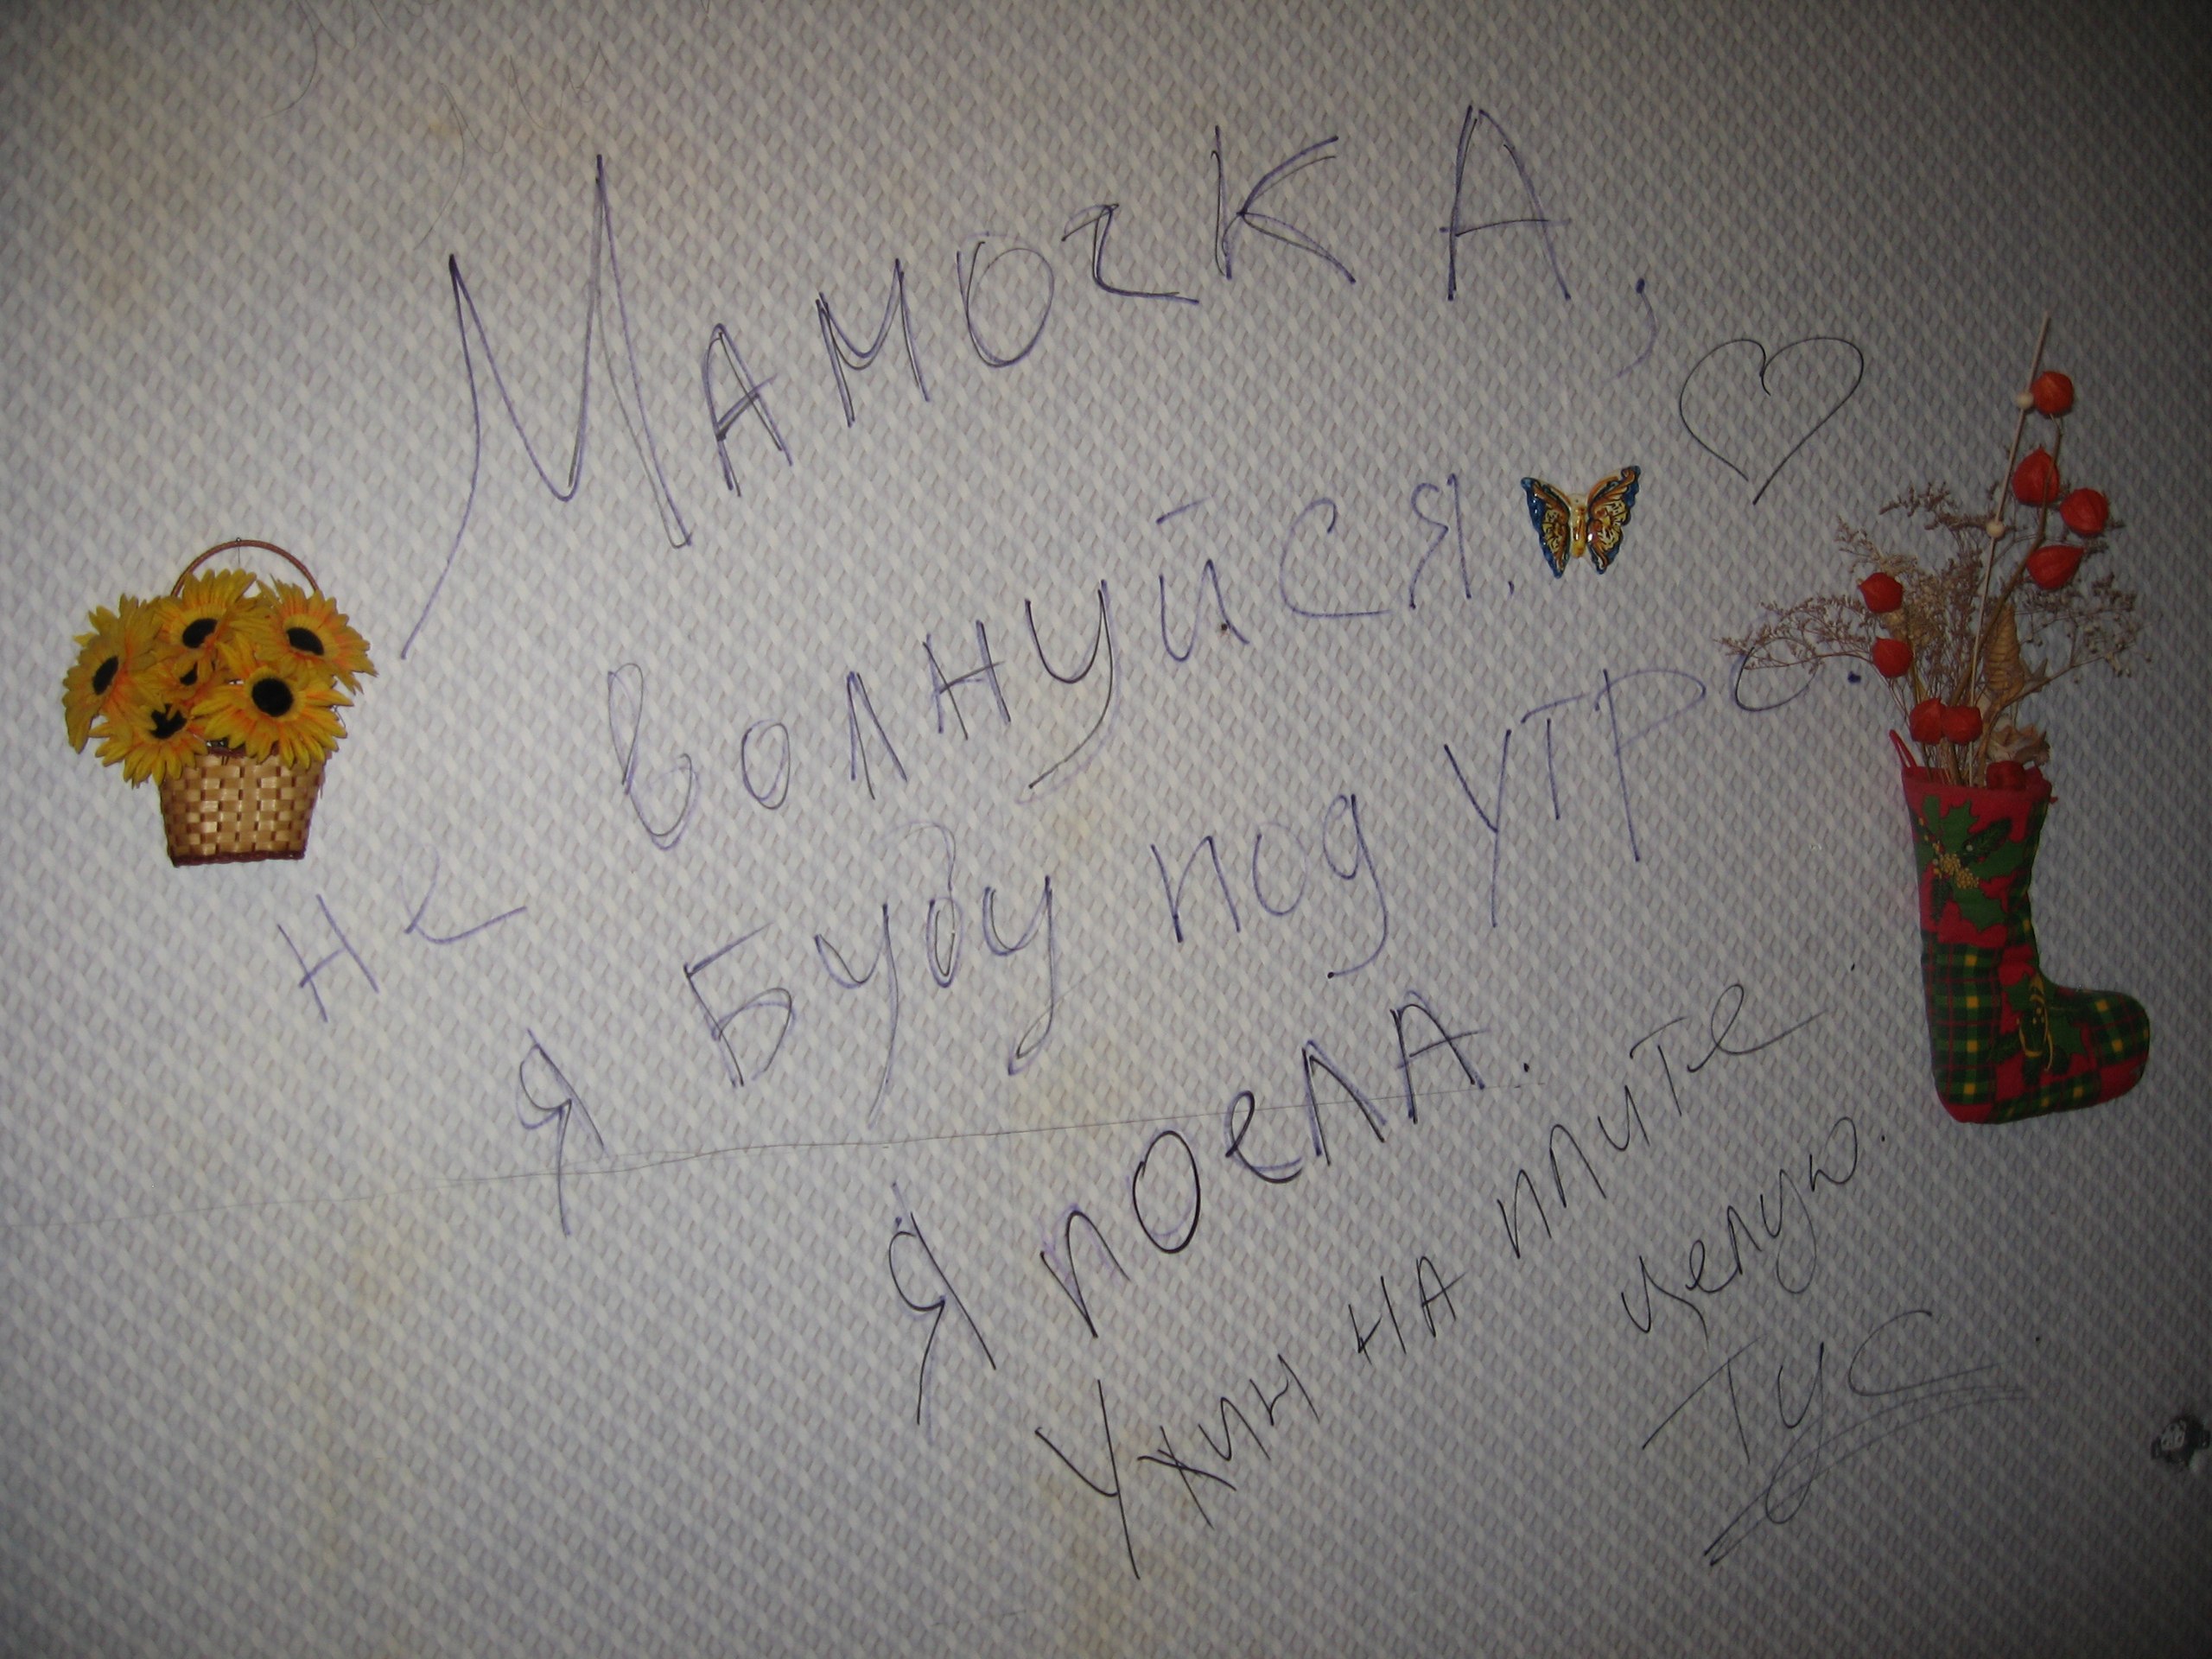 Мамочка,
не волнуйся.
Я Буду под утро.
Я поела.
Ужин на плите
целую.
Тус